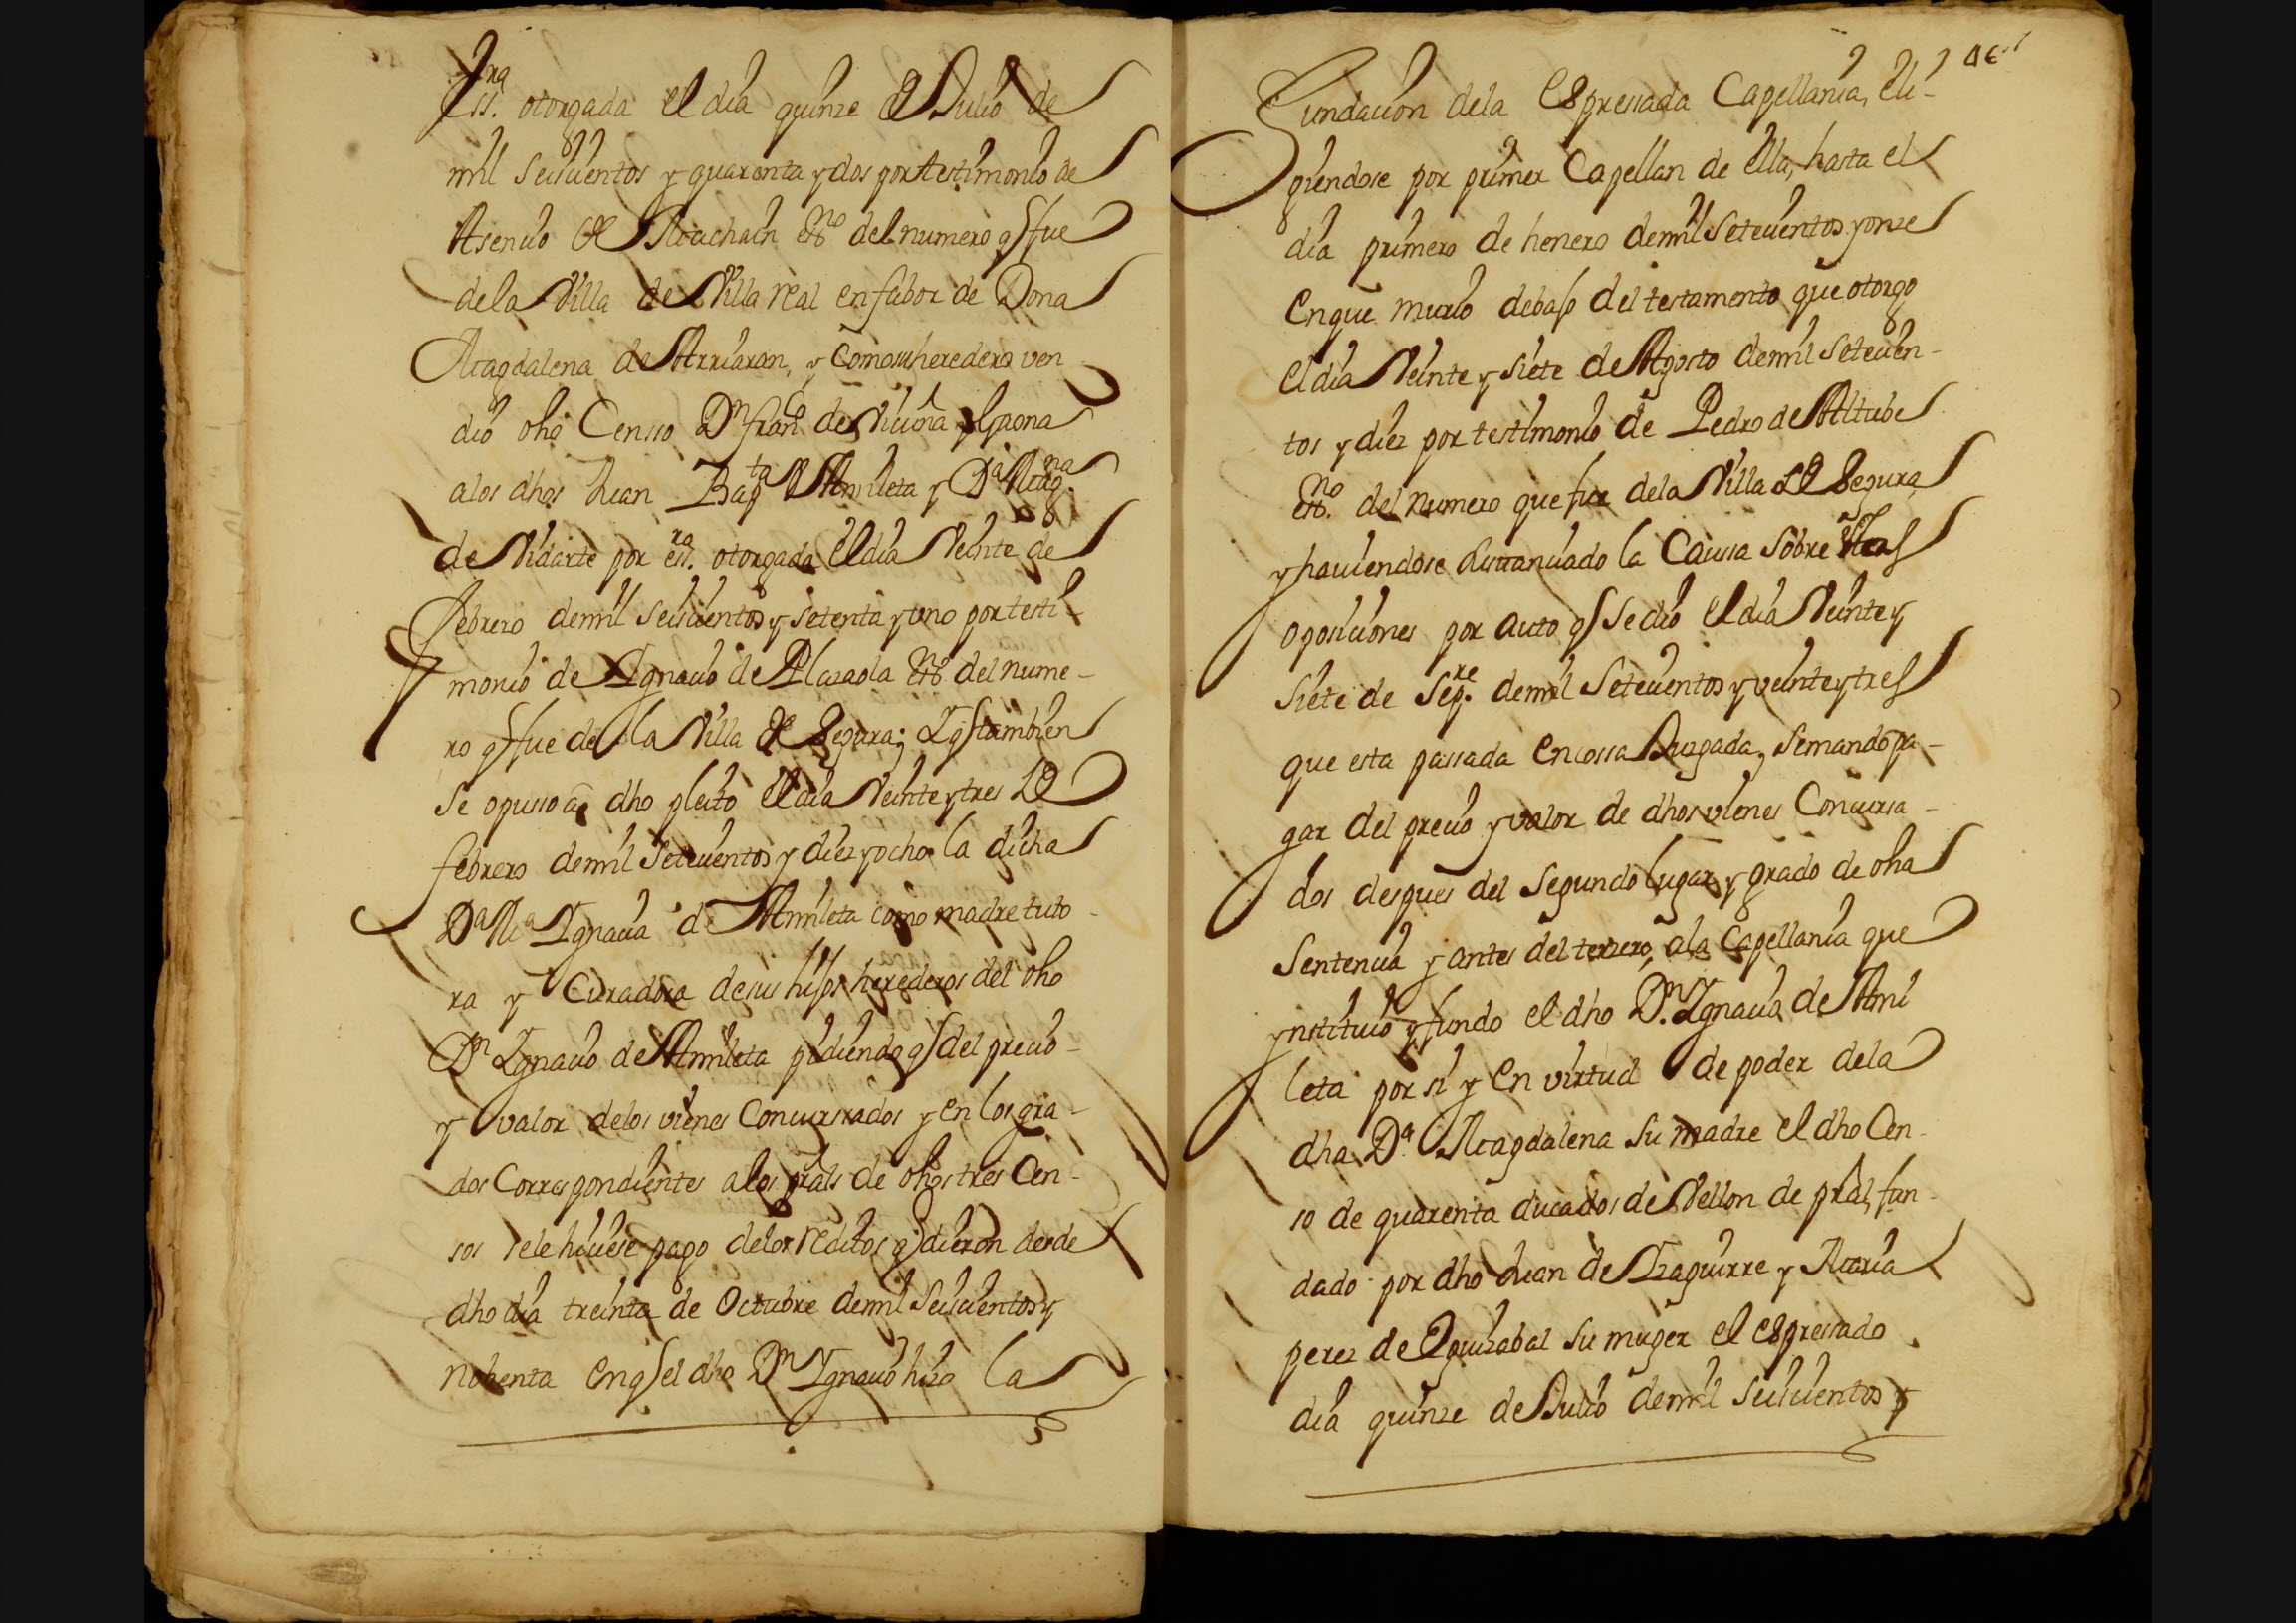 Ess.ra otorgada el dia quinze de Julio de
mil seiscientos y quarenta y dos por testimonio de
Asencio de Machain essno del numero q fue
de la Villa de Villa real en fabor de Dona
Magdalena de Arriaran, y como su heredero ven
dio dho Censso Dn franco de Vicuña y Gaona
a los dhos Juan Bapta de Amileta y Da Magna
de Vidarte por essra otorgada el dia Veinte de
febrero de mil seiscientos y setenta y uno por testi-
monio de Ignacio de Plazaola essno del nume-
ro q fue de la Villa de Segura; Y q tambien
se opusso a dho pleito el dia Veinte y tres de
febrero de mil setecientos y diez y ocho la dicha
Da Ma Ignacia de Amileta como madre tuto-
ra y Curadora de sus hijos herederos del dho
Dn Ignacio de Amileta pidiendo q del precio
y valor de los vienes Concurssados y en los gra-
dos Correspondientes a los prals de dhos tres Cen-
sos se le hiciese pago de los reditos q dieron desde
dho dia treinta de Octubre de mil seiscientos y
nobenta en q el dho Dn Ignacio hizo la
fundacion de la Espressada Capellania, Eli-
giendose por primer Capellan de ella, hasta el
dia primero de henero de mil setecientos y onze
en que murio debajo del testamento que otorgo
el dia Veinte y siete de Agosto de mil setecien-
tos y diez por testimonio de Pedro de Altube
essno del numero que fue de la Villa de Segura,
y haviendose sustanciado la Caussa sobre estas
oposiciones por auto q se dio el dia Veinte y
siete de Sepre de mil setecientos y veinte y tres
que esta passada en cossa Juzgada, se mando pa-
gar del precio y valor de dhos vienes Concursa-
dos despues del segundo lugar y grado de dha
sentencia y antes del terzero, a la Capellania que
ynstituio y fundo el dho Dn Ignacio de Ami
leta por si y en virtud de poder de la
dha Da Magdalena su madre el dho Cen-
so de quarenta ducados de Vellon de pral, fun-
dado por dho Juan de Yzaguirre y Maria
perez de Eguizabal su muger el espressado
dia quinze de Julio de mil seiscientos y